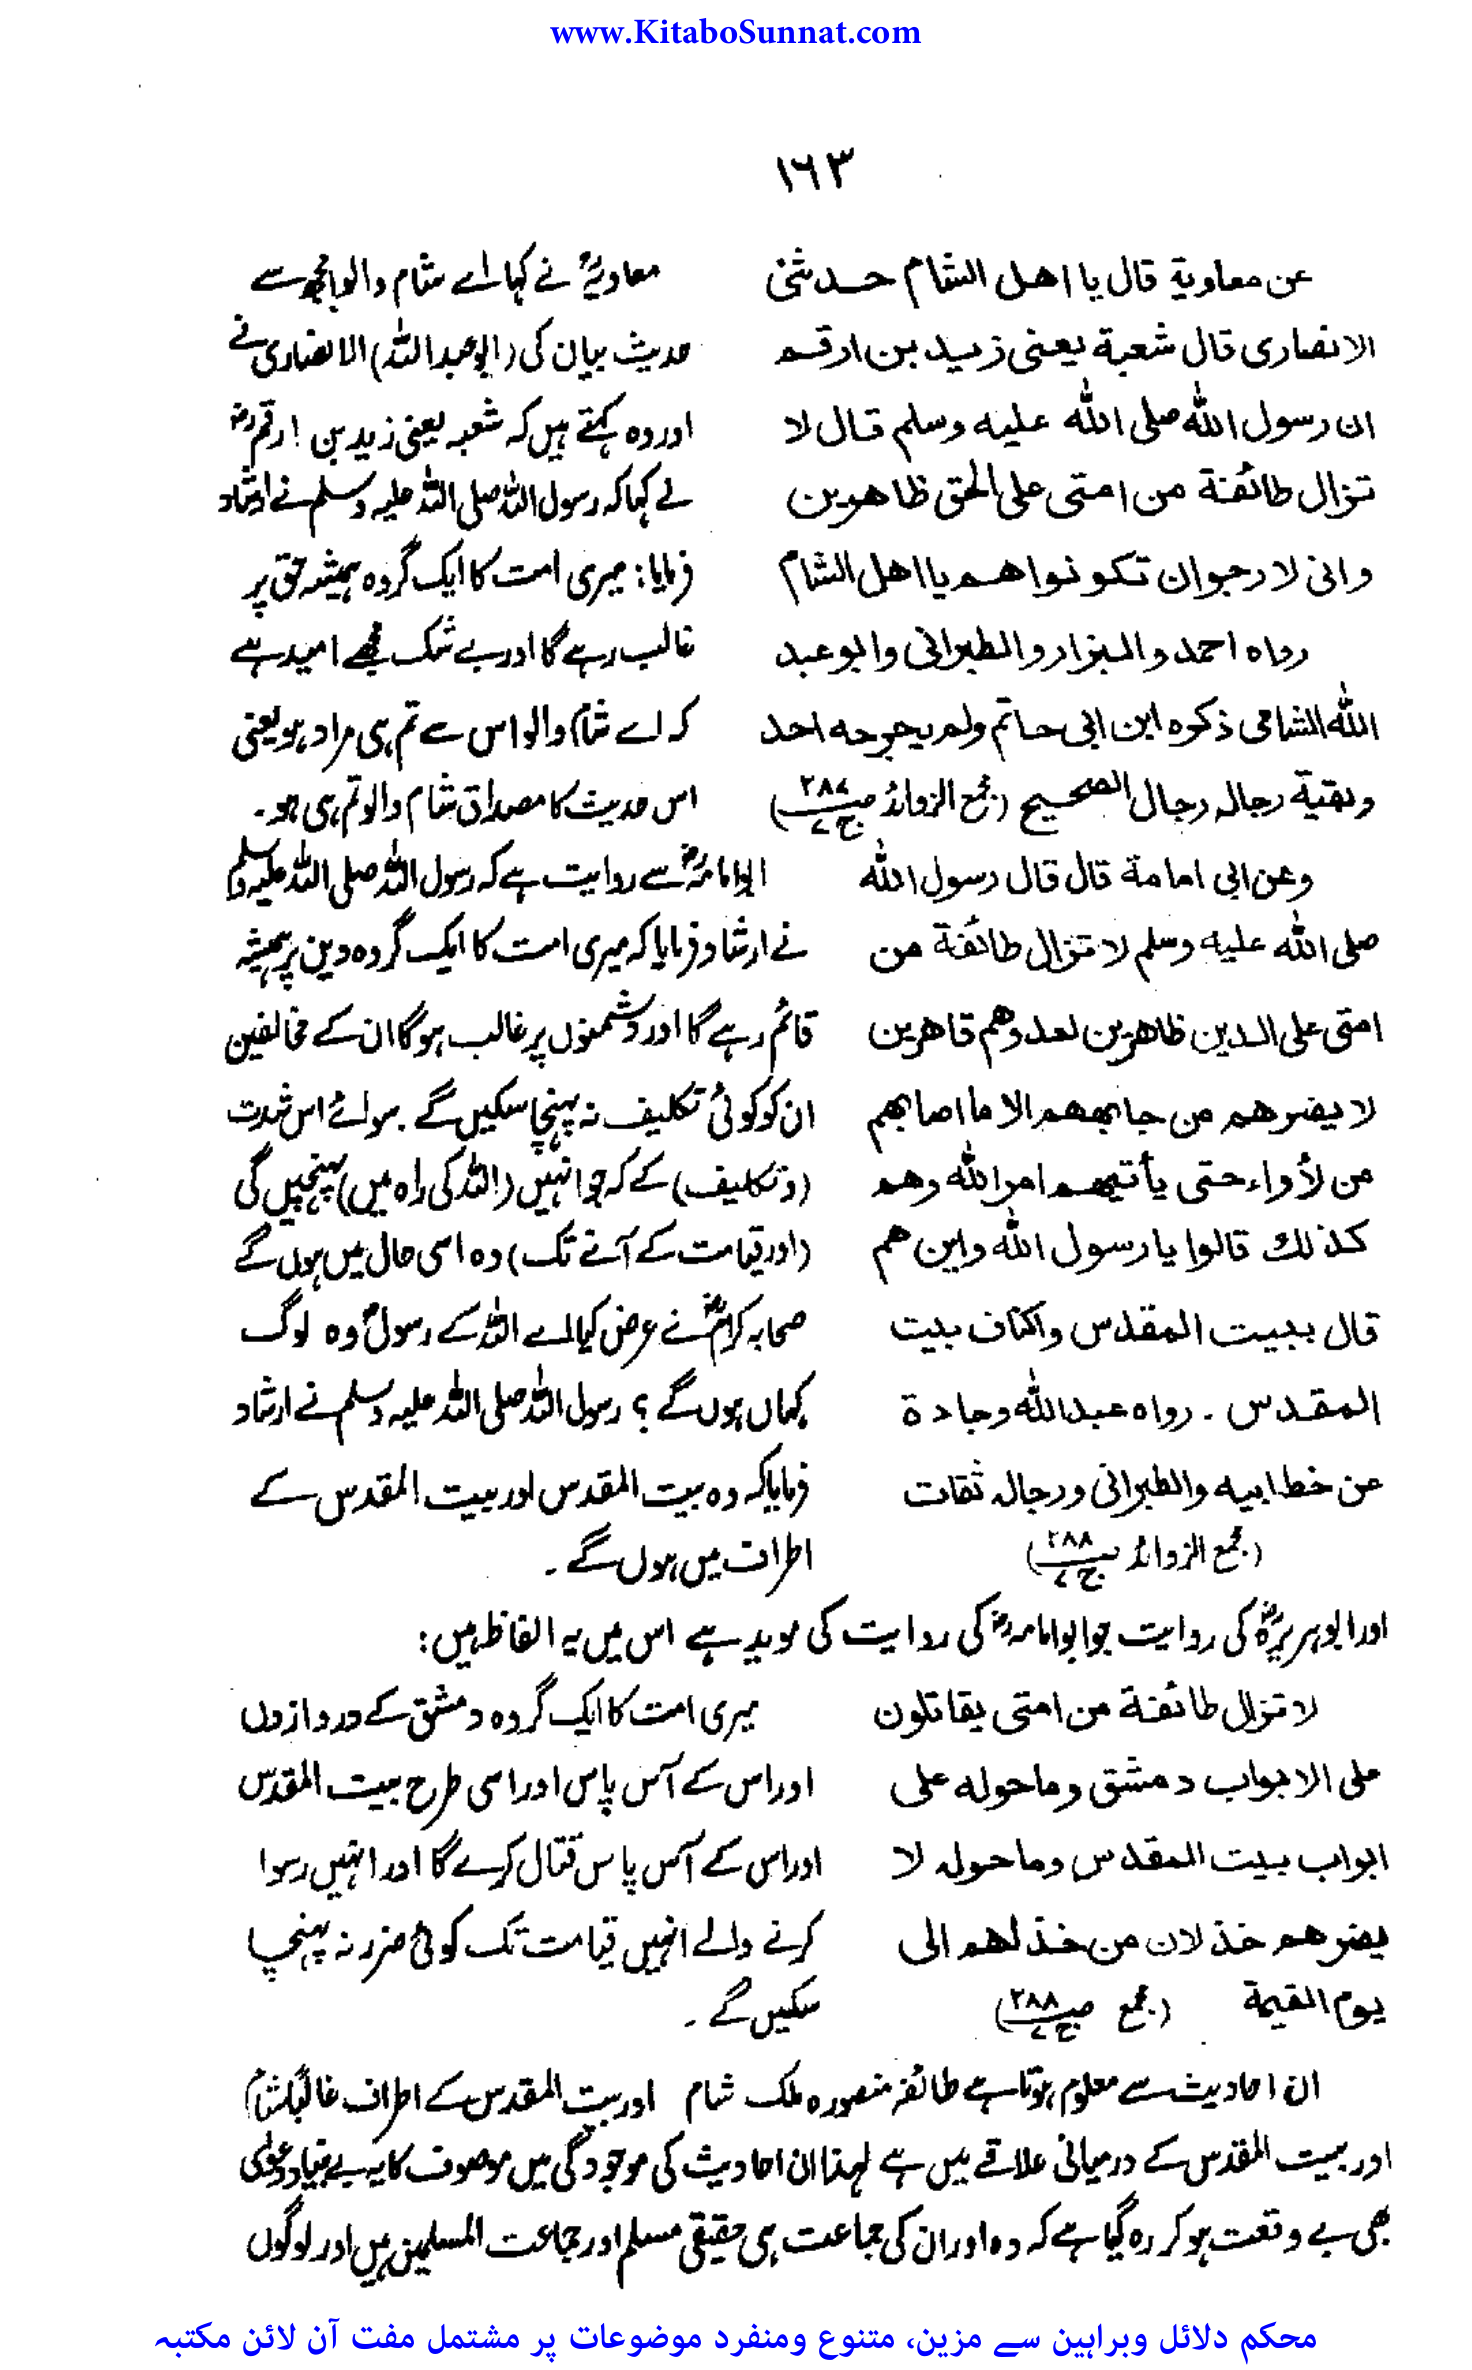 www.KitaboSunnat.com
۱۶۳
عن معاوية قال يا اهل الشام حدثنى
الانصارى قال شعبة يعنى زيد بن ارقم
ان رسول الله صلى الله عليه وسلم قال لا
تزال طائفة من امتى على الحق ظاهرين
وانى لارجوان تكونواهم يا اهل الشام
رواه احمد والبزار والطبرانى وابو عبد
الله الشامى ذكره ابن ابى حاتم ولم يجرحه احد
وبقية رجاله رجال الصحيح (مجمع الزوائد ص۲۸۷ ج۷)
معاویہؓ نے کہا اے شام والو! مجھ سے
حدیث بیان کی (ابوعبداللہ) الانصاری نے
اور وہ کہتے ہیں کہ شعبہ یعنی زید بن ارقمؓ
نے کہا کہ رسول اللہ صلی اللہ علیہ وسلم نے ارشاد
فرمایا: میری امت کا ایک گروہ ہمیشہ حق پر
غالب رہے گا اور بے شک مجھے امید ہے
کہ اے شام والو اس سے تم ہی مراد ہو یعنی
اس حدیث کا مصداق شام والو تم ہی ہو۔
وعن ابى امامة قال قال رسول الله
صلى الله عليه وسلم لا تزال طائفة من
امتى على الدين ظاهرين لعدوهم قاهرين
لا يضرهم من جابههم الا ما اصابهم
من لأواء حتى يأتيهم امر الله وهم
كذلك قالوا يا رسول الله واين هم
قال ببيت المقدس واكناف بيت
المقدس ۔ رواه عبد الله وجادة
عن خط ابيه والطبرانى ورجاله ثقات
(مجمع الزوائد ص۲۸۸ ج۷)
ابوامامہؓ سے روایت ہے کہ رسول اللہ صلی اللہ علیہ وسلم
نے ارشاد فرمایا کہ میری امت کا ایک گروہ دین پر ہمیشہ
قائم رہے گا اور دشمنوں پر غالب ہوگا ان کے مخالفین
ان کو کوئی تکلیف نہ پہنچا سکیں گے۔ سوائے اس شدت
(و تکلیف) کے کہ جو انہیں (اللہ کی راہ میں) پہنچیں گی
(اور قیامت کے آنے تک) وہ اسی حال میں ہوں گے
صحابہ کرامؓ نے عرض کیا اے اللہ کے رسولؐ وہ لوگ
کہاں ہوں گے؟ رسول اللہ صلی اللہ علیہ وسلم نے ارشاد
فرمایا کہ وہ بیت المقدس اور بیت المقدس کے
اطراف میں ہوں گے۔
اور ابوہریرہؓ کی روایت جو ابوامامہؓ کی روایت کی موید ہے اس میں یہ الفاظ ہیں:
لا تزال طائفة من امتى يقاتلون
على الابواب دمشق وما حوله على
ابواب بيت المقدس وما حوله لا
يضرهم خذلان من خذلهم الى
يوم القيمة (مجمع ص۲۸۸ ج۷)
میری امت کا ایک گروہ دمشق کے دروازوں
اور اس کے آس پاس اور اسی طرح بیت المقدس
اور اس کے آس پاس قتال کرے گا اور انہیں رسوا
کرنے والے انہیں قیامت تک کوئی ضرر نہ پہنچا
سکیں گے۔
ان احادیث سے معلوم ہوتا ہے طائفہ منصورہ ملک شام اور بیت المقدس کے اطراف غالباً شام
اور بیت المقدس کے درمیانی علاقے میں ہے لہذا ان احادیث کی موجودگی میں موصوف کا یہ بے بنیاد دعویٰ
بھی بے وقعت ہو کر رہ گیا ہے کہ وہ اور ان کی جماعت ہی حقیقی مسلم اور جماعت المسلمین ہیں اور لوگوں
محکم دلائل وبراہین سے مزین، متنوع ومنفرد موضوعات پر مشتمل مفت آن لائن مکتبہ